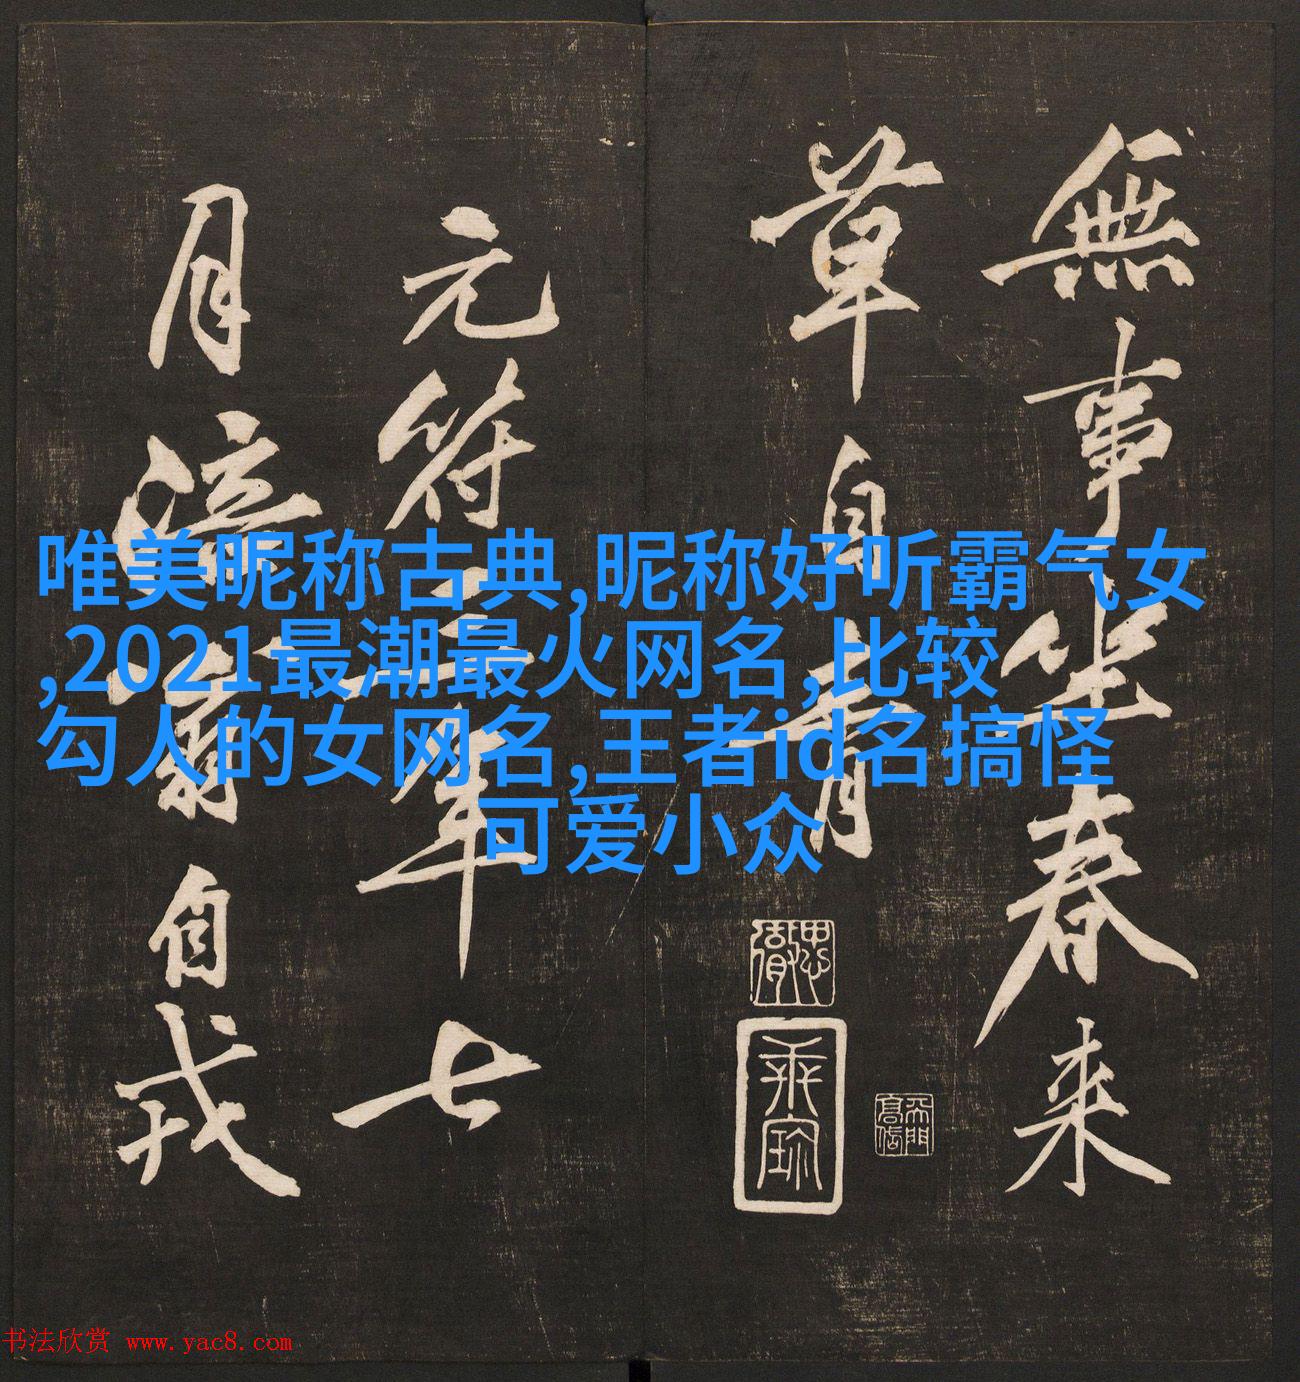 無事坐春来
草自青
元符三年七
月涪翁自戎
唯美昵称古典,昵称好听霸气女
,2021最潮最火网名,比较
勾人的女网名,王者id名搞怪
可爱小众
书法欣赏 www.yac8.com